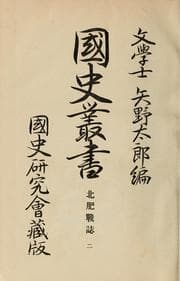 文學士 矢野太郎編
國史叢書
北肥戰誌 二
國史研究會藏版